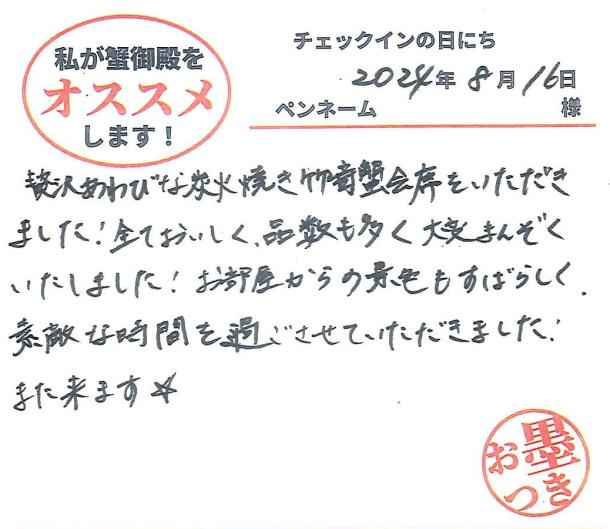 私が蟹御殿を
オススメ
します！
チェックインの日にち
2024年8月16日
ペンネーム 様
贅沢あわびな炭火焼き竹崎蟹会席をいただき
ました！全ておいしく、品数も多く大変まんぞく
いたしました！お部屋からの景色もすばらしく、
素敵な時間を過ごさせていただきました！
また来ます☆
お墨
つき